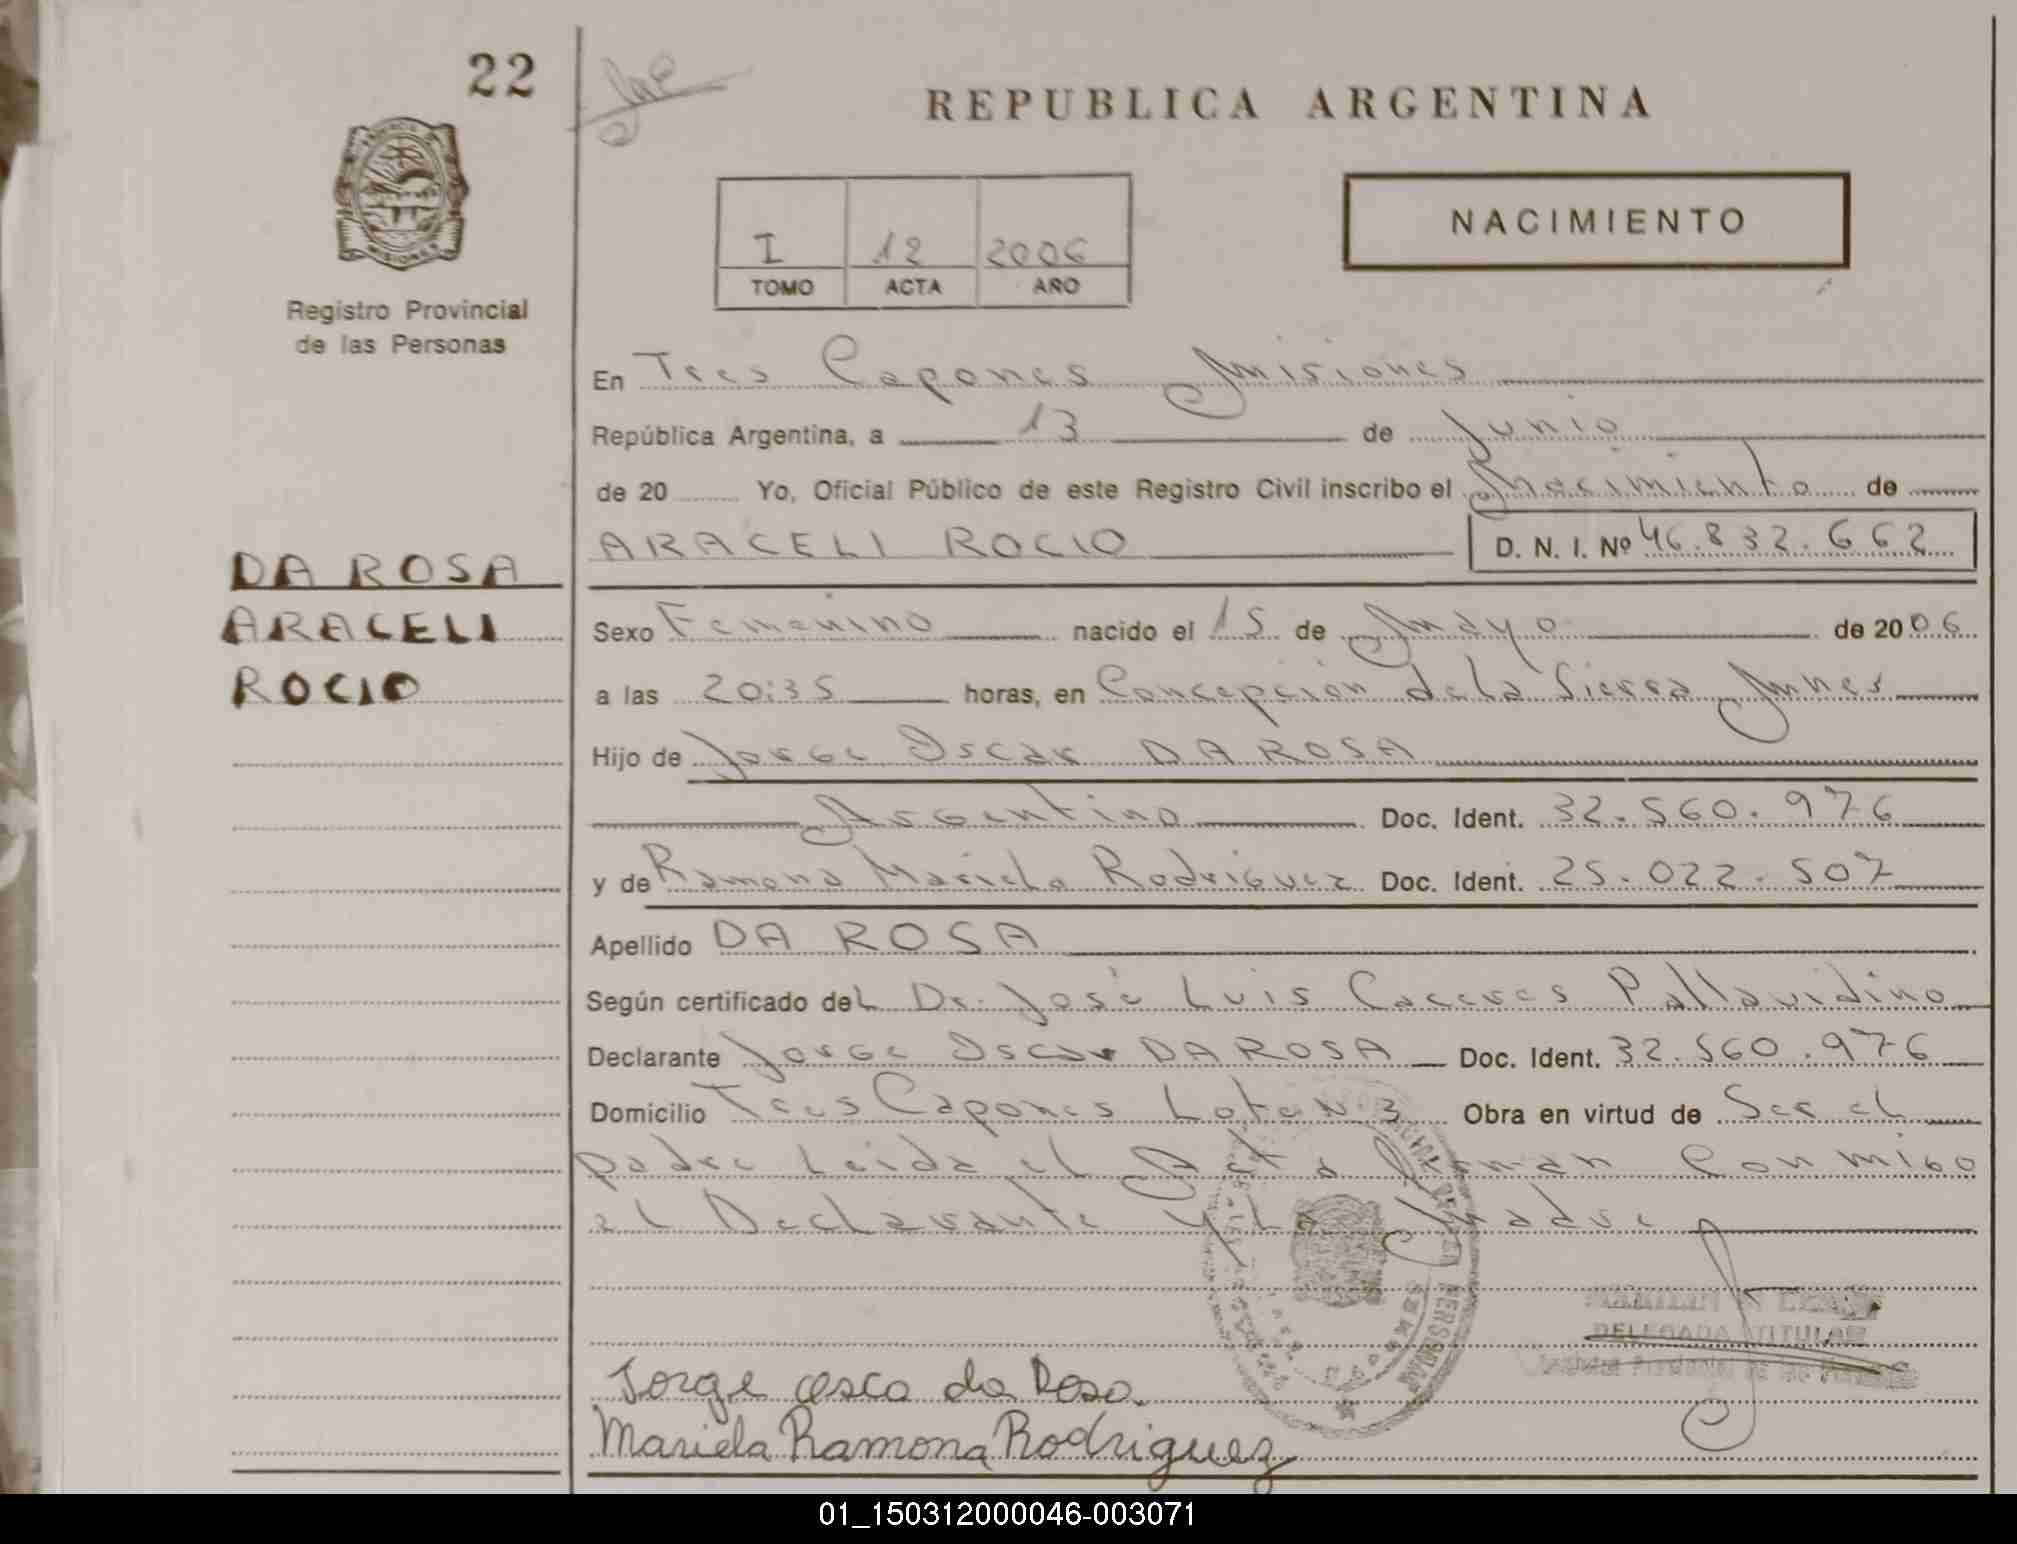 22
REPUBLICA ARGENTINA
NACIMIENTO
I 12 2006
TOMO ACTA AÑO
Registro Provincial
de las Personas
En Tres Capones Misiones
República Argentina, a 13 de Junio
de 20 Yo, Oficial Público de este Registro Civil inscribo el Nacimiento de
ARACELI ROCIO D. N. I. Nº 46.832.662
DA ROSA
ARACELI
ROCIO
Sexo Femenino nacido el 15 de Mayo de 2006
a las 20:35 horas, en Concepción de la Sierra Mnes
Hijo de Jorge Oscar DA ROSA
Argentino Doc. Ident. 32.560.976
y de Ramona Mariela Rodriguez Doc. Ident. 25.022.507
Apellido DA ROSA
Según certificado del Dr. José Luis Caceres Pallavidino
Declarante Jorge Oscar DA ROSA Doc. Ident. 32.560.976
Domicilio Tres Capones Lote N 3 Obra en virtud de Ser el
padre Leida el Acta Firman Conmigo
el Declarante y La Madre
DELEGADA TITULAR
Jorge osca da Rosa
Mariela Ramona Rodriguez
01_150312000046-003071